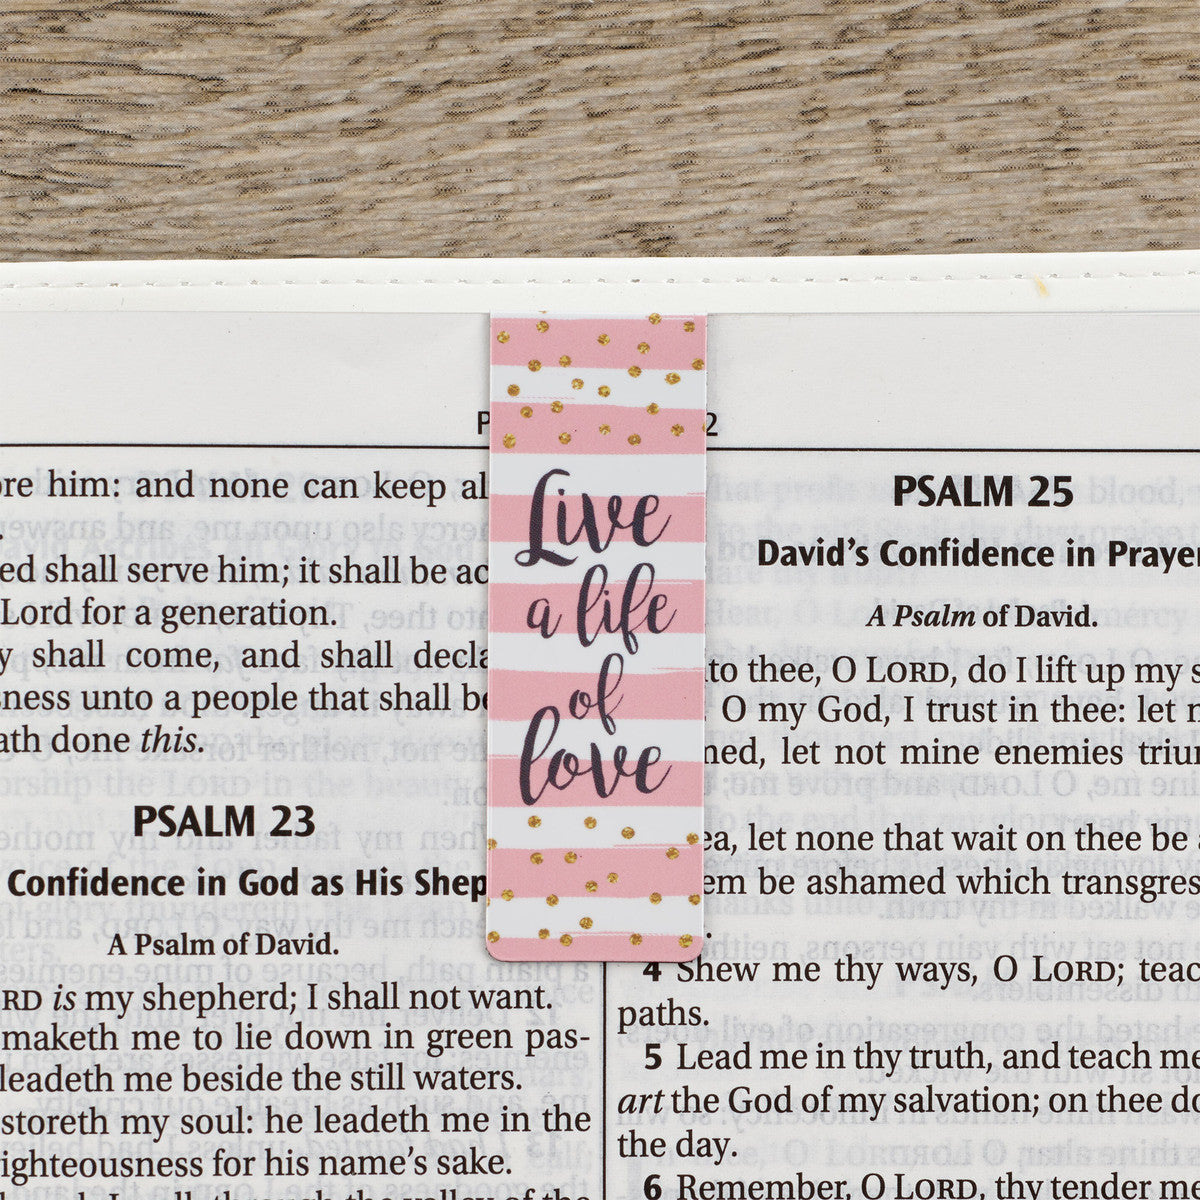 Live
a life
of
love
P
2
ore him; and none can keep al
ed shall serve him; it shall be ac
Lord for a generation.
y shall come, and shall decla
sness unto a people that shall be
ath done this.
PSALM 23
Confidence in God as His Shep
A Psalm of David.
ORD is my shepherd; I shall not want.
maketh me to lie down in green pas-
leadeth me beside the still waters.
storeth my soul: he leadeth me in the
ighteousness for his name's sake.
PSALM 25
David's Confidence in Prayer
A Psalm of David.
to thee, O LORD, do I lift up my s
O my God, I trust in thee: let n
med, let not mine enemies triu
ea, let none that wait on thee be a
em be ashamed which transgres
4 Shew me thy ways, O LORD; teac
paths.
5 Lead me in thy truth, and teach me
art the God of my salvation; on thee do
the day.
6 Remember, O LORD, thy tender me